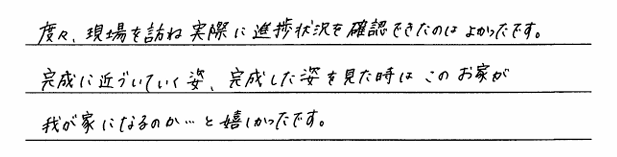 度々、現場を訪ね実際に進捗状況を確認できたのはよかったです。
完成に近づいていく姿、完成した姿を見た時はこのお家が
我が家になるのか…と嬉しかったです。